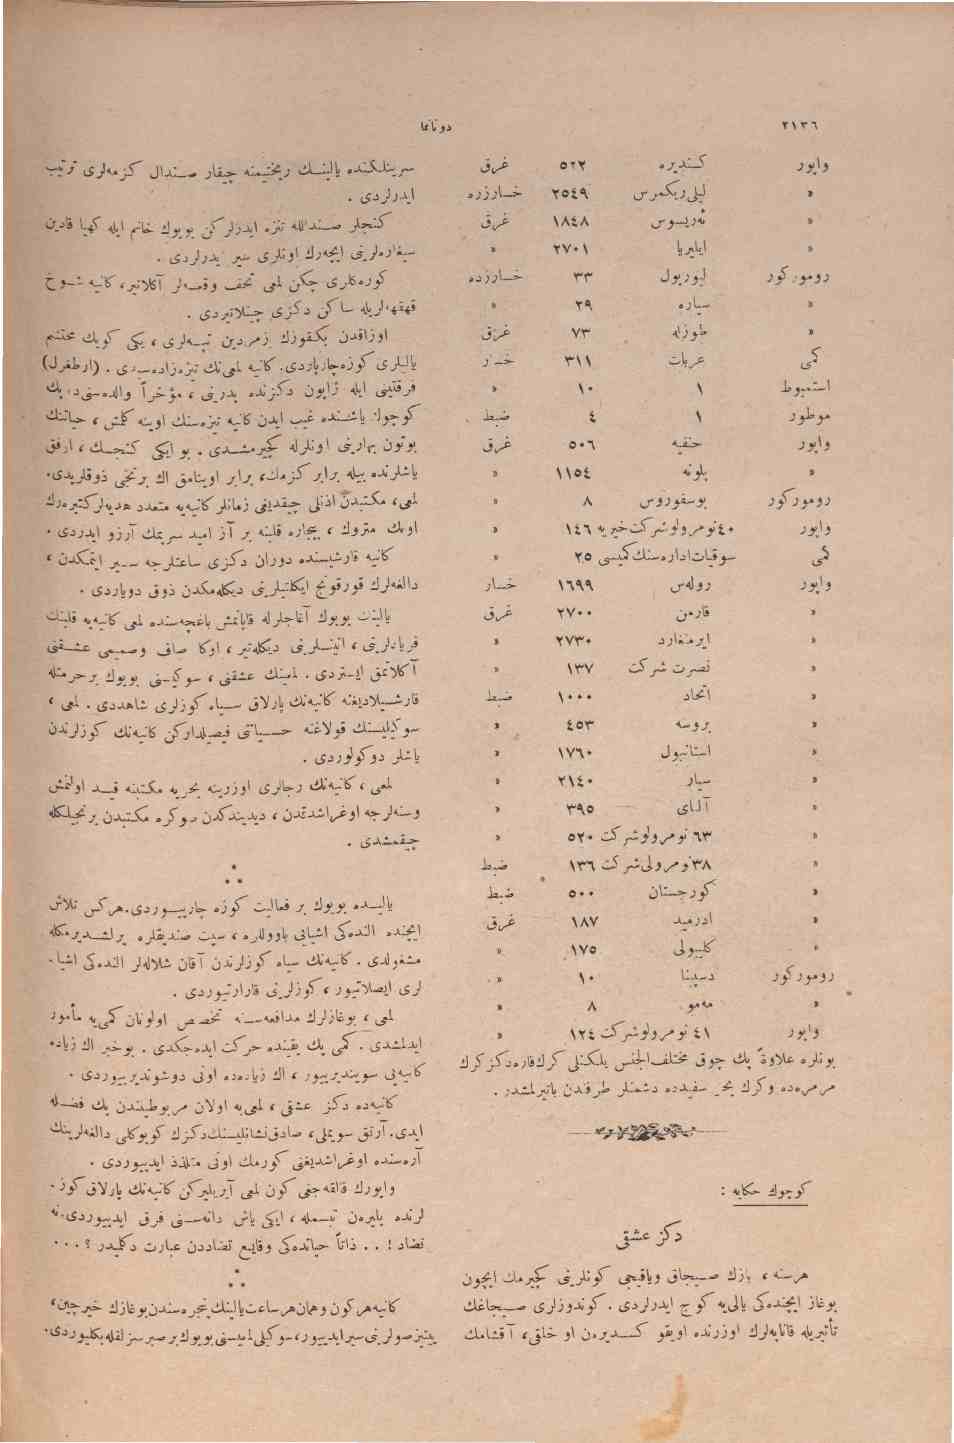 ٢١٣٦
دونانما
واپور كسنديره ٥٢٢ غرق
» ليلى ريكمرس ٢٥٤٩ خسارزده
» نه‌ريسوس ١٨٤٨ غرق
» ايليريا ٢٧٠١ »
روموركور ليورپول ٣٣ خسارزده
» سياره ٢٩ »
» طوزله ٧٣ غرق
كمى عربات ٣١١ خسار
استمبوط ١ ١٠ »
موطور ١ ٤ ضبط
واپور حنفيه ٥٠٦ غرق
» پلونه ١١٥٤ »
روموركور بوسفوروس ٨ »
واپور ٤٠ نومرولو شركت خيريه ١٤٦ »
كمى سوقيات اداره سنك كميسى ٢٥ »
واپور روله‌س ١٦٩٩ خسار
» قارمن ٢٧٠٠ غرق
» ايرمنغارد ٢٧٣٠ »
» نصرت شركت ١٣٧ »
» اتحاد ١٠٠٠ ضبط
» بروسه ٤٥٣ »
» استانبول ١٧٦٠ »
» سيار ٢١٤٠ »
» آلاى ٣٩٥ »
» ٦٣ نومرولو شركت ٥٢٠ »
» ٣٨ نومرولى شركت ١٣٦ ضبط
» كورجستان ٥٠٠ ضبط
» ادرميد ١٨٧ غرق
» كليبولى ١٧٥ »
روموركور دسپينا ١٠ »
» مه‌مو ٨ »
واپور ٤١ نومرولو شركت ١٢٤ »
بونلره علاوةً پك چوق مختلف الجنس يلكنلى كرك قاره دكز كرك
مرمره‌ده وكرك بحر سفيدده دشمنلر طرفندن باتيرلمشدر .
كوچوك حكايه :
دكز عشقى
هر سنه ، يازك صيجاق وياقيجى كونلرينى كچيرمك ايچون
بوغاز ايچنده كى يالى‌يه كوچ ايدرلردى . كوندوزلرى صيجاغك
تأثيريله قاناپه‌لرك اوزرنده اويقو كسديره‌ن او خلقى ، آقشامك
سرينلكنده يالينك ريختيمنه چيقار صندال كزمه‌لرى ترتيب
ايدرلردى .
كنجلر صندالله تنزه ايدرلركن بويوك خانم ايله كهيا قادين
سيغاره‌لرينى ايچه‌رك اونلرى سير ايدرلردى .
كوره‌كلرى چكن لمعى تحف وقعه‌لر آكلاتير ، كانيه شوخ
قهقهه‌لريله ساكن دكزى چينلاتيردى .
اوزاقدن بكقوزك زمردين تپه‌لرى ، يكى كويك محتشم
ياليلرى كوزه چارپاردى. كانيه لمعى‌نك تيزه زاده‌سيدى . (ارطغرل)
فرقتينى ايله ژاپون دكزنده پدرينى ، مؤخراً والده‌سنى ده پك
كوچوك ياشنده غيب ايدن كانيه تيزه‌سنك اوينه كلمش ، حياتنك
بوتون بهارينى اونلرله كچيرمشدى . بو ايكى كنجك ، اوفق
ياشلرنده بيله برابر كزمك، برابر اوينامق اك برنجى ذوقلريدى.
لمعى، مكتبدن اذنلى چيقديغى زمانلر كانيه‌يه متعدد هديه‌لر كتيره‌رك
اونك متروك ، بيچاره قلبنه بر آز اميد سرپمك آرزو ايدردى .
كانيه قارشيسنده دوران دكزى ساعتلرجه سير ايتمكدن ،
دالغه‌لرك قورقونج ايكلتيلرينى ديكله‌مكدن ذوق دوياردى .
يالينك بويوك آغاجلرله قاپانمش باغچه‌سنده لمعى كانيه‌يه قلبنك
فريادلرينى ، انينلرينى ديكله‌تير ، اوكا صاف وصميمى عشقنى
آكلاتمق ايستردى . لمعينك عشقنى ، سوكيسنى بويوك بر حرمتله
قارشيلاديغنه كانيه‌نك پارلاق سياه كوزلرى شاهددى . لمعى ،
سوكيليسنك قولاغنه حسياتنى فيصيلداركن كانيه‌نك كوزلرندن
ياشلر دوكولوردى .
لمعى ، كانيه‌نك رجالرى اوزرينه بحريه مكتبنه قيد اولنمش
وسنه‌لرجه اوغراشدقدن ، ديديندكدن صوكره مكتبدن برنجيلكله
چيقمشدى .
*
* *
ياليده بويوك بر فعاليت كوزه چارپيوردى. هركس تلاش
ايچنده النده كى اشيايى باووللره ، سپت صنديقلره يرلشديرمكله
مشغولدى . كانيه‌نك سياه كوزلرندن آقان شلاله‌لر النده كى اشيا-
لرى ايصلاتيور ، كوزلرينى قارارتيوردى .
لمعى ، بوغازلرك مدافعه‌سنه تخصص اولونان كمى‌يه مأمور
ايدلمشدى . كمى پك يقينده حركت ايده‌جكدى . بو خبر اك زياده
كانيه‌يى سوينديرييور ، اك زياده‌ده اونى دوشوندرييوردى .
كانيه‌ده دكز عشقى ، لمعى‌يه اولان مربوطيتندن پك فضله
ايدى. آرتق سويملى، صادق نشانليسنك دكزك كوپوكلى دالغه‌لرينك
آره‌سنده اوغراشديغنى كورمك اونى متلذذ ايدييوردى .
واپورك قالقه‌جغى كون لمعى آيريليركن كانيه‌نك پارلاق كوز-
لرنده بليره‌ن تبسمله ، ايكى ياش دانه‌سنى فرق ايدييوردى. نه
تضاد ! . . ذاتاً حياتده كى وقايع تضاددن عبارت دكلميدر ؟ . . .
*
* *
كانيه هركون وهمان هر ساعت يالينك پنجره‌سندن بوغازك خيرچين،
پيتيز صولرنى سير ايدييور، سوكيلى لمعيسنى بويوك بر صبرسزلقله بكليوردى.